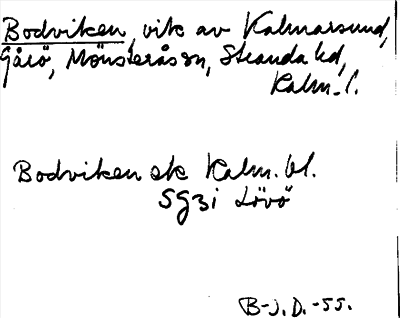 Bodviken, vik av Kalmarsund,
Gårö, Mönsterås sn, Stranda hd,
Kalm. l.
Bodviken ek Kalm. bl.
5G3i Lövö
B-J. D. -55.